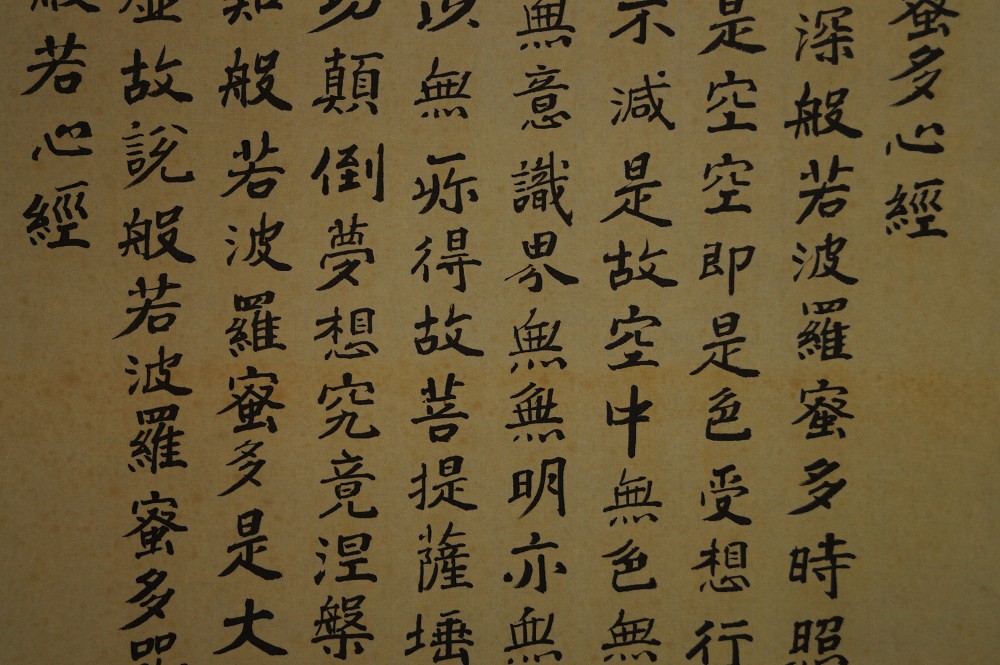 蜜多心經
深般若波羅蜜多時照
是空空即是色受想行
不減是故空中無色無
無意識界無無明亦無
以無所得故菩提薩埵
切顛倒夢想究竟涅槃
知般若波羅蜜多是大
虛故說般若波羅蜜多
般若心經